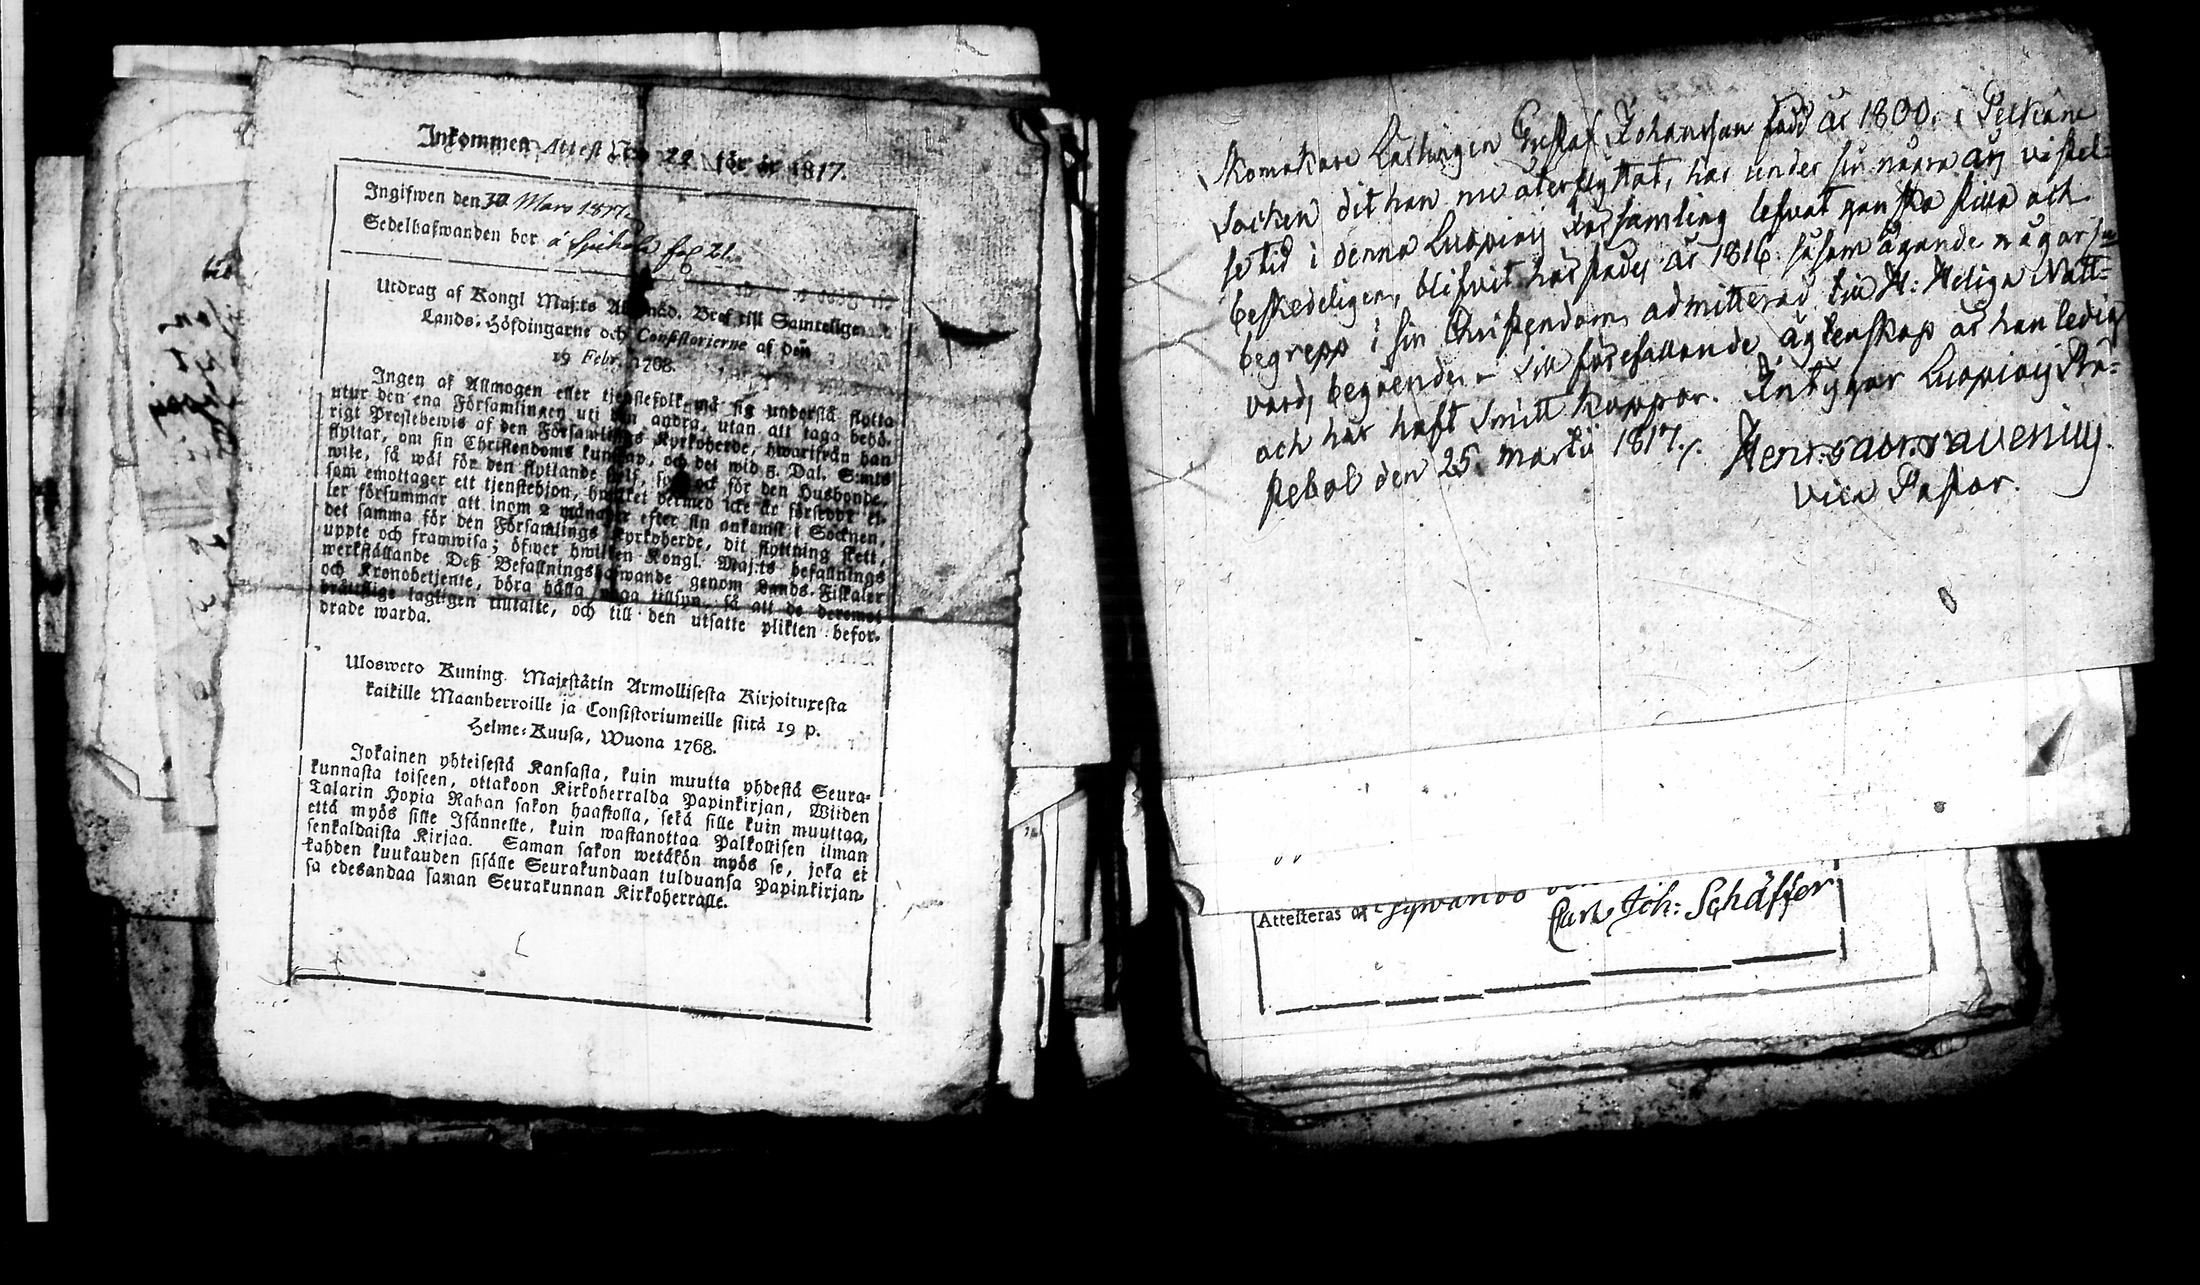 Inkommen Attest N:o 22 för år 1817.
Ingifwen den 30 Mars 1817.
Sedelhafwanden bor á fol 21.
Utdrag af Kongl Maj:ts Allernåd. Bref till Samtelige
Lands-Höfdingarne och Consistorierne af den
19 Febr. 1768.
Ingen af Allmogen eller tjenstefolk må sig understå flytta
utur den ena Församlingen uti den andra, utan att taga behö-
rigt Prestebewis af den Församlings Kyrkoherde, hwarifrån han
flyttar, om sin Christendoms kunskap, och det wid 5. Dal. S:mts
wite, så wäl för den flyttande sjelf, som ock för den Husbonde,
som emottager ett tjenstehjon, hwilket dermed icke är försedt el-
ler försummar att inom 2 månader efter sin ankomst i Socknen,
det samma för den Församlings Kyrkoherde, dit flyttning skett,
uppte och framwisa; öfwer hwilken Kongl. Maj:ts befallnings
werkställande Deß Befallningshafwande genom Lands-Fiskaler
och Kronobetjente, böra hålla noga tillsyn, så att de deremot
bråttslige lagligen tilltalte, och till den utsatte plikten befor-
drade warda.
Ulosweto Kuning. Majestätin Armollisesta Kirjoituxesta
kaikille Maanherroille ja Consistoriumeille siitä 19 p.
Helme-Kuusa, Wuona 1768.
Jokainen yhteisestä Kansasta, kuin muutta yhdestä Seura-
kunnasta toiseen, ottakoon Kirkoherralda Papinkirjan, Wiiden
Talarin Hopia Rahan sakon haastolla, sekä sille kuin muuttaa,
että myös sille Isännelle, kuin wastanottaa Palkollisen ilman
senkaldaista Kirjaa. Saman sakon wetäkön myös se, joka ei
kahden kuukauden sisälle Seurakundaan tulduansa Papinkirjan-
sa edesandaa saman Seurakunnan Kirkoherralle.
Skomakare Lärlingen Gustaf Johansson född år 1800. i Pelkäne
Socken dit han nu återflyttat, har under sin några års vistel-
se tid i denna Luopiois Församling lefvat ganska stilla och
beskedeligen, blifvit härstädes år 1816 såsom ägande någorlun
begrepp i sin Christendom, admitterad till H: Heliga Natt-
vard, begående. Till förefallande ägtenskap är han ledig
och har haft Smitt Koppor. Intygar Luopiois Prä-
stebol den 25 Martii 1817.
Vice Pastor.
Attesteras af
Carl Joh: Schäffer